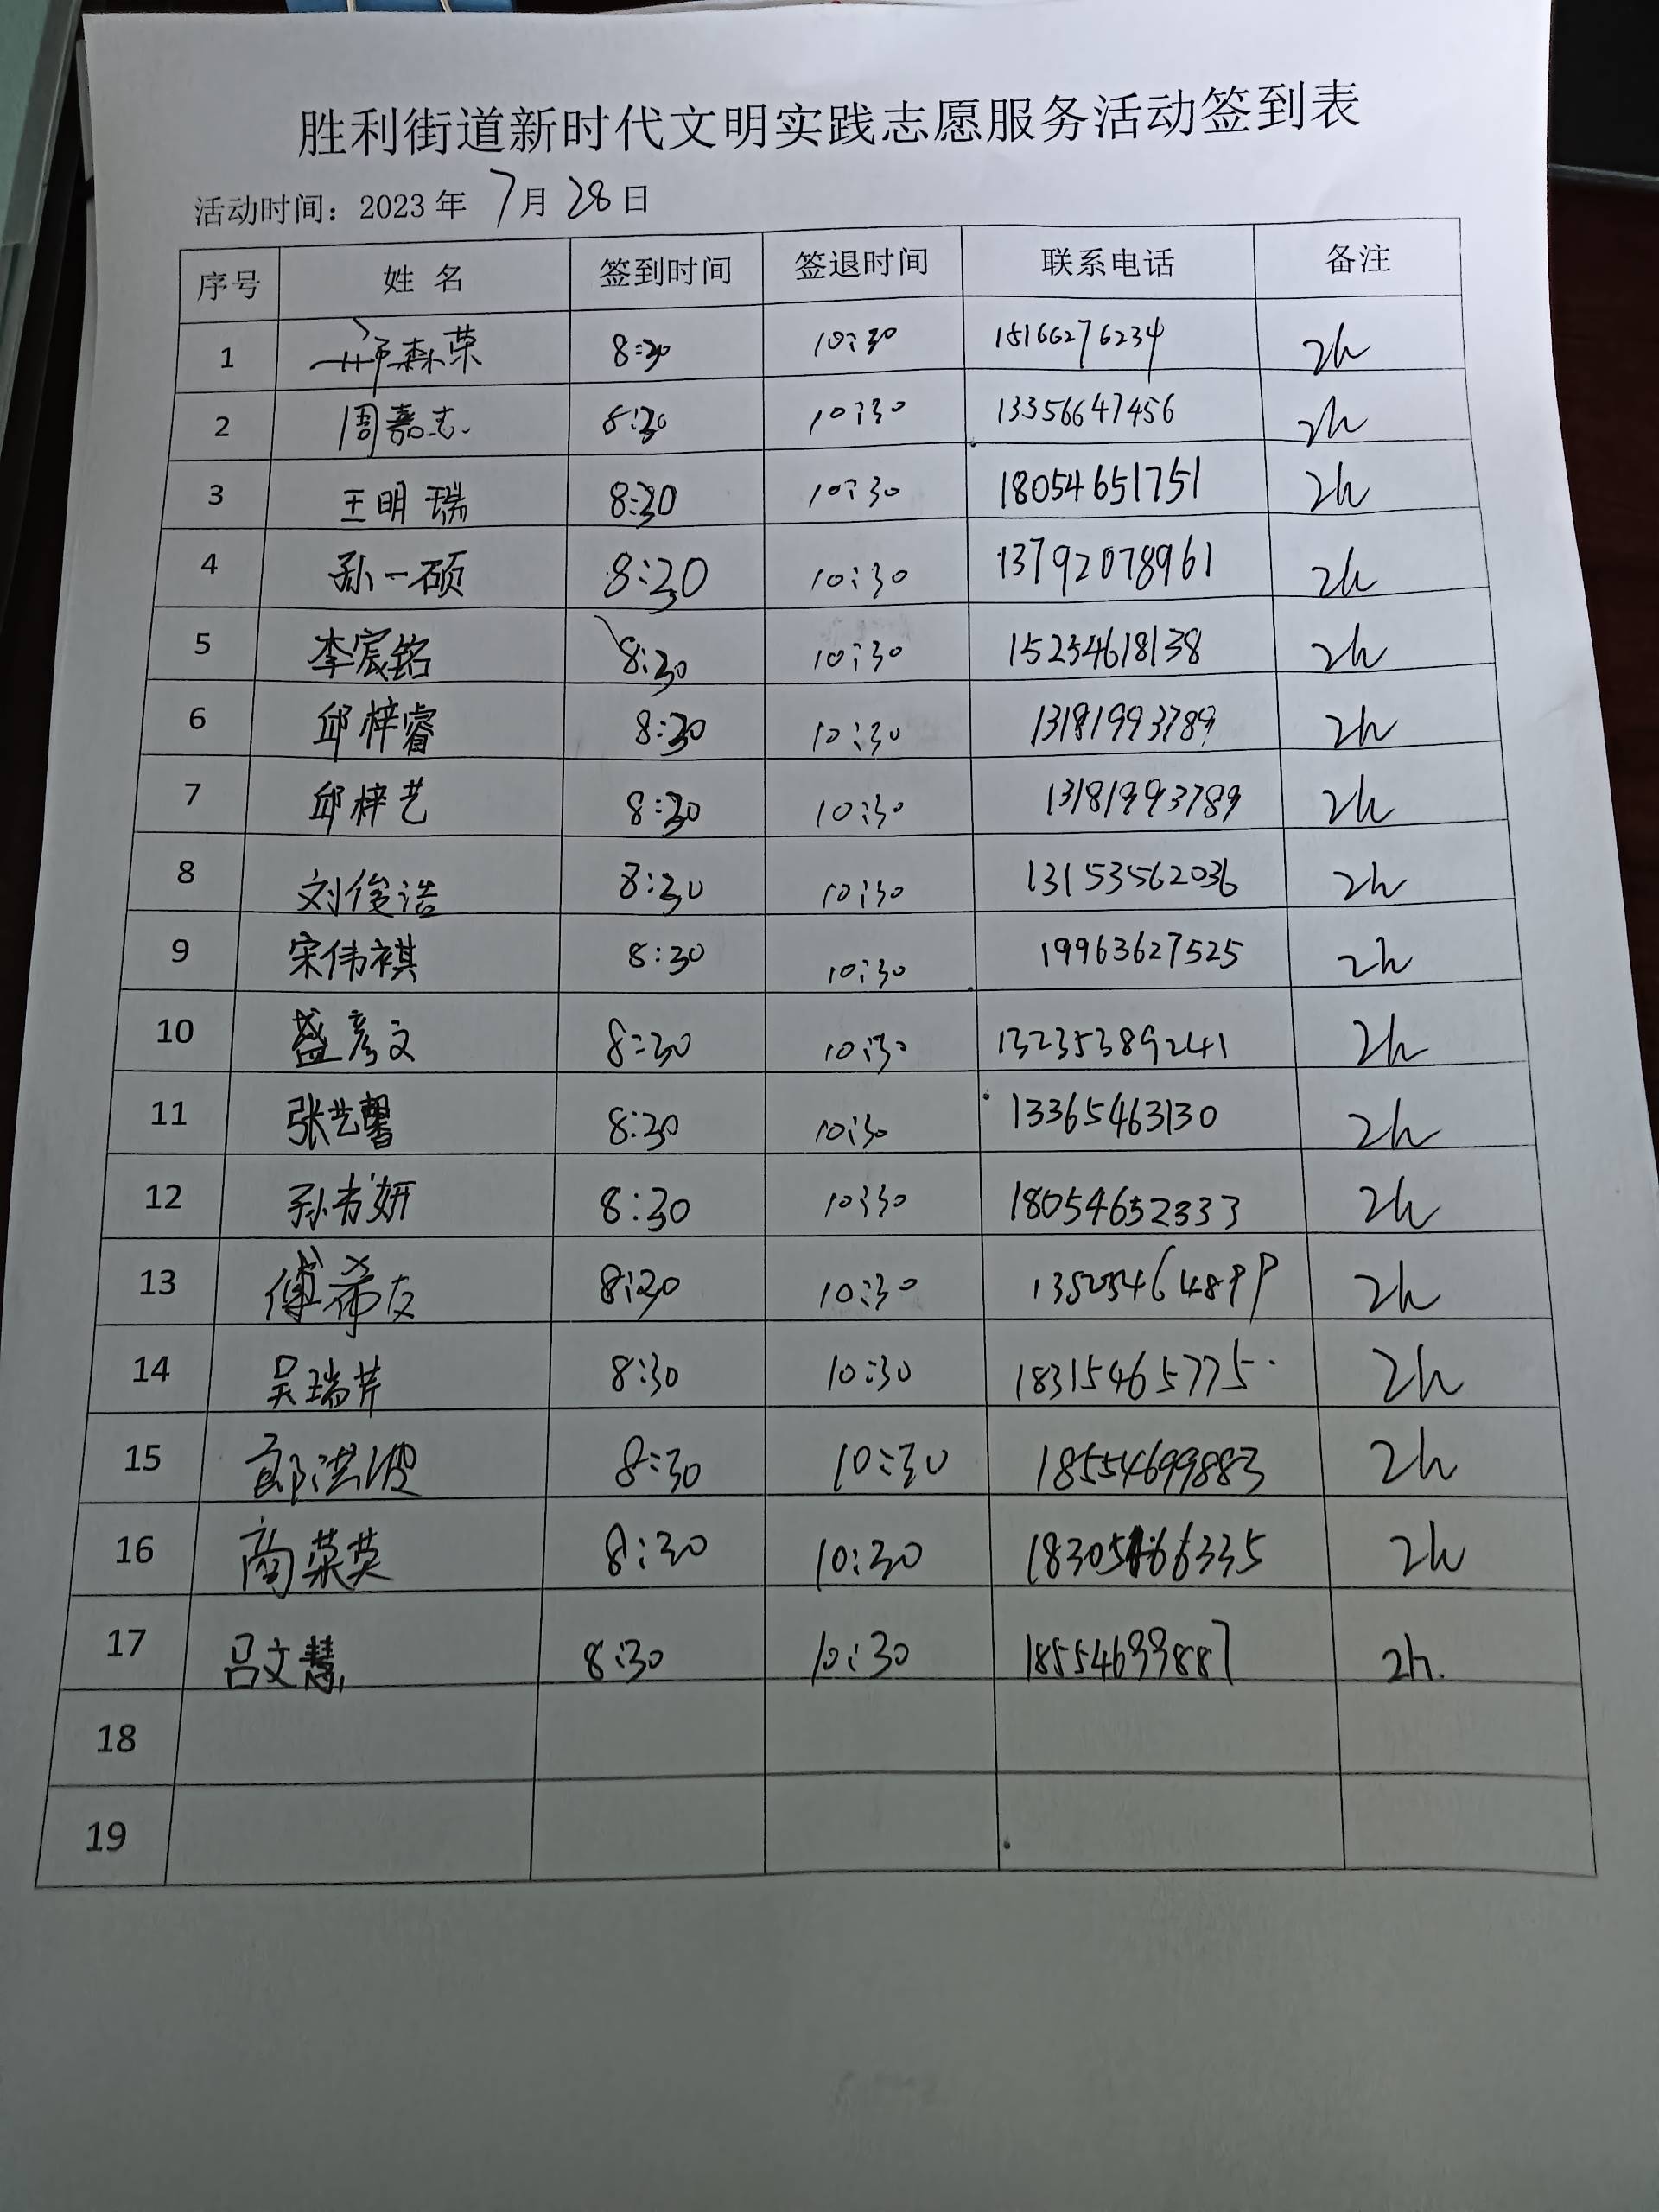 胜利街道新时代文明实践志愿服务活动签到表
活动时间：2023年 7月28日
序号 姓名 签到时间 签退时间 联系电话 备注
1 森荣 8:30 10:30 15166276234 2h
2 周嘉志 8:30 10:30 13356647456 2h
3 王明瑞 8:30 10:30 18054651751 2h
4 孙一硕 8:30 10:30 13792078961 2h
5 李宸铭 8:30 10:30 15254618138 2h
6 邱梓睿 8:30 10:30 13181993789 2h
7 邱梓艺 8:30 10:30 13181993789 2h
8 刘俊浩 8:30 10:30 13153562036 2h
9 宋伟祺 8:30 10:30 19963627525 2h
10 盛彦文 8:30 10:30 13235389241 2h
11 张艺馨 8:30 10:30 13365463130 2h
12 孙书妍 8:30 10:30 18054652333 2h
13 傅希友 8:30 10:30 2h
14 吴瑞芹 8:30 10:30 18315465775 2h
15 郎洪波 8:30 10:30 18554699883 2h
16 商荣英 8:30 10:30 2h
17 吕文慧 8:30 10:30 18554699887 2h.
18
19